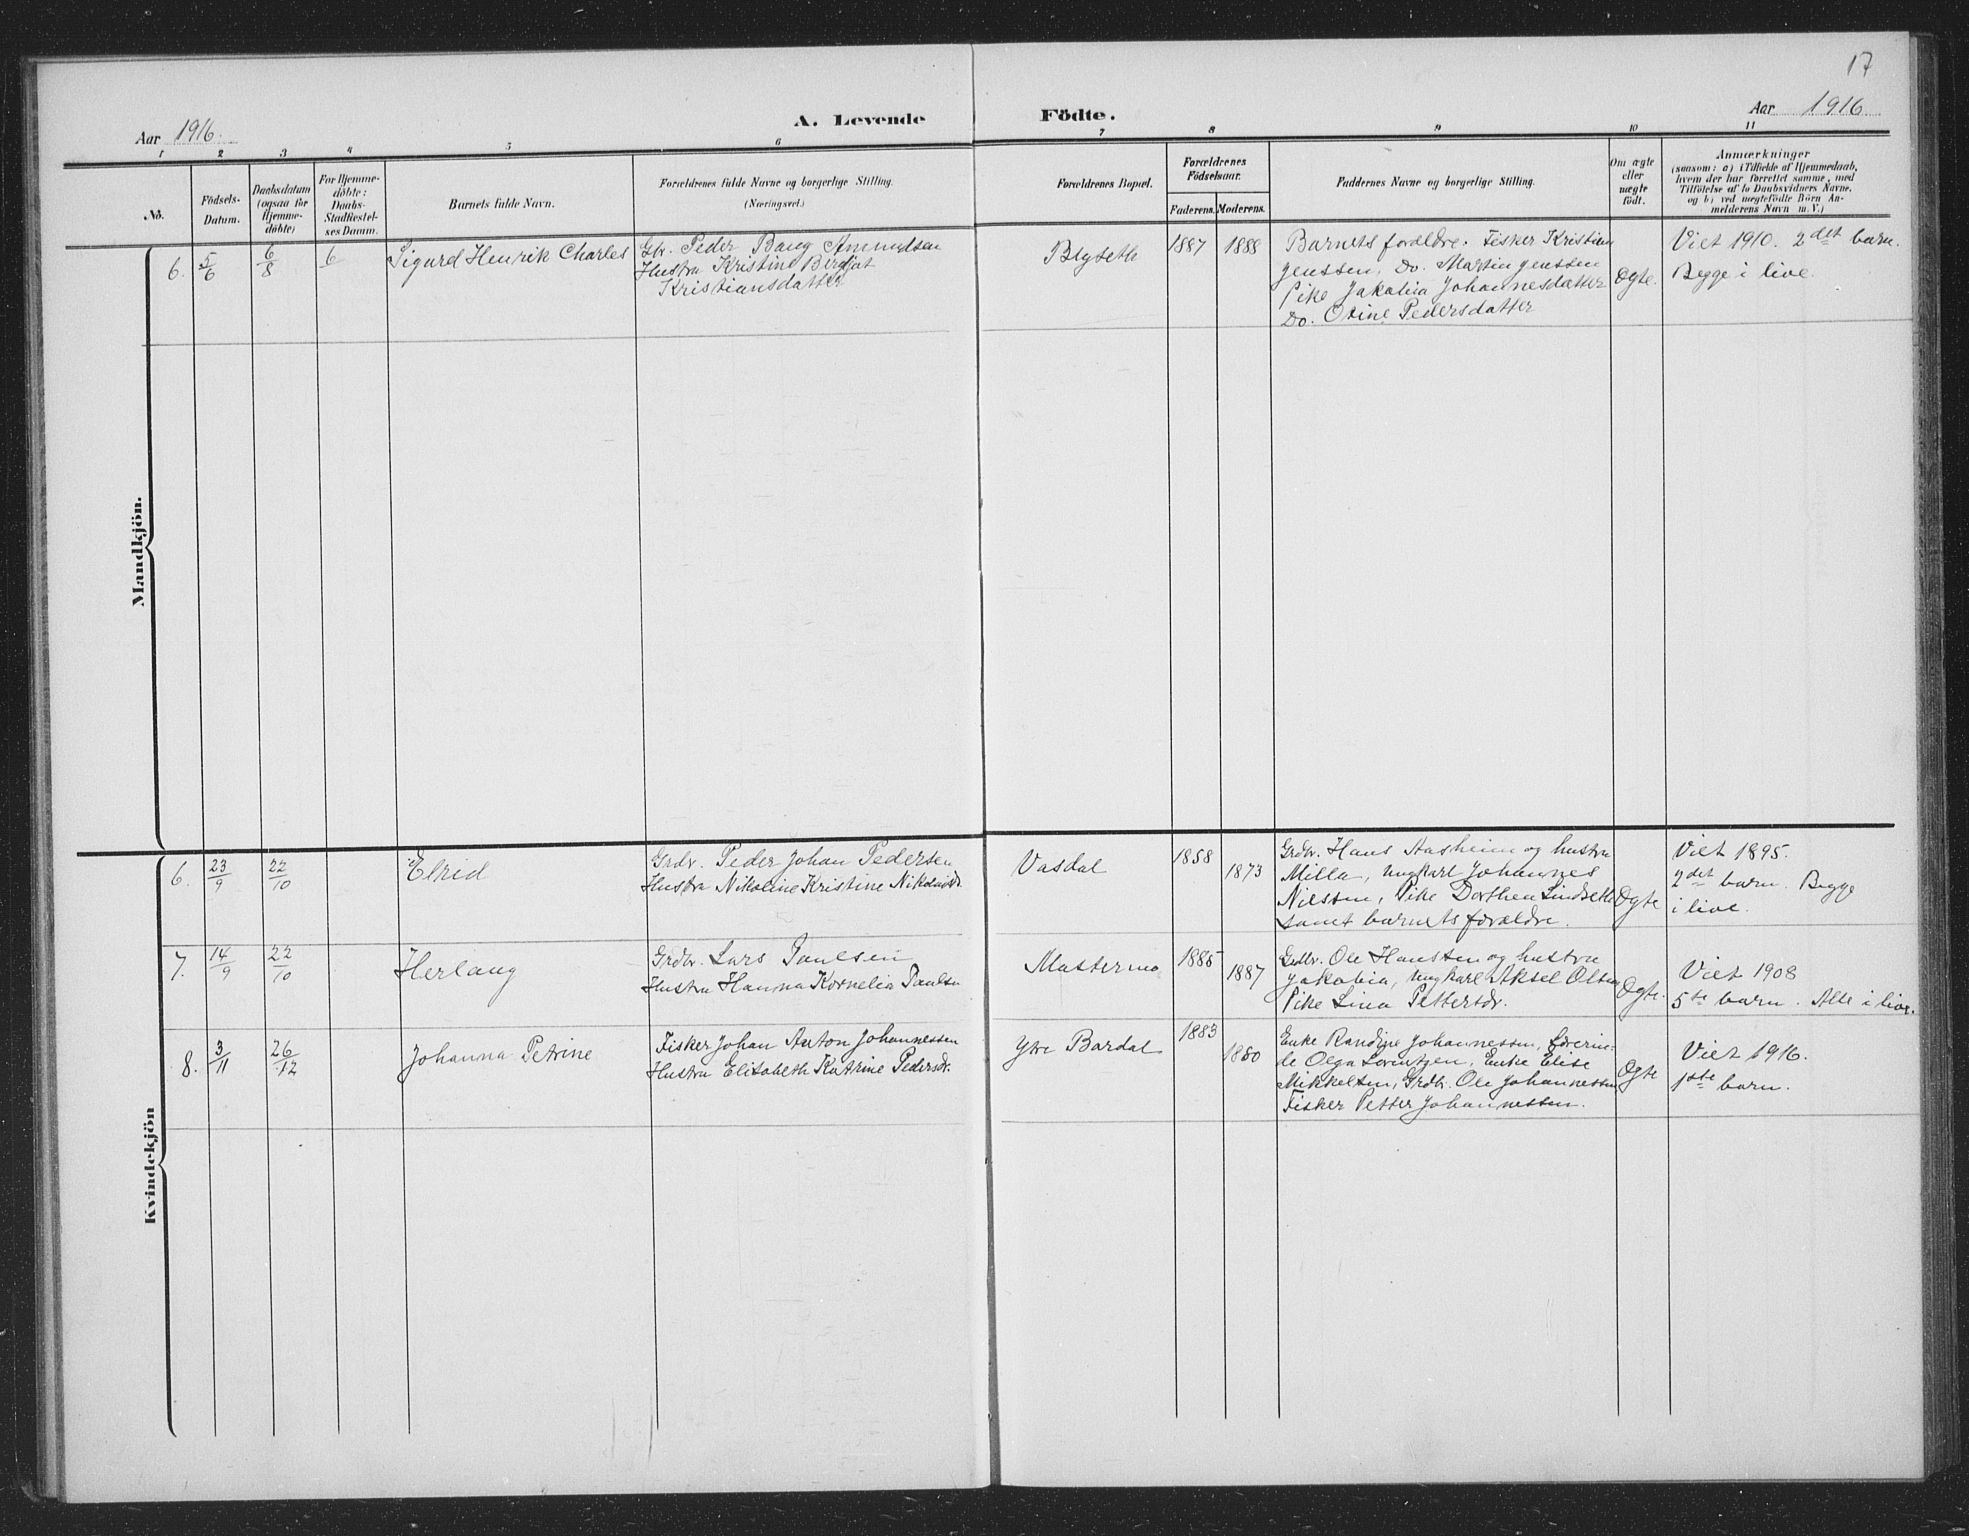 17
Aar 1916.
A. Levende
Födte.
Aar 1916
1 2 3 4 5 6 7 8 9 10 11
No.
Födsels-
Datum.
Daabsdatum
(ogsaa for
Hjemme-
döbte)
For Hjemme-
döbte:
Daabs-
Stadfæstel-
ses Datum.
Barnets fulde Navn.
Forældrenes fulde Navne og borgerlige Stilling.
(Næringsvei.)
Forældrenes Bopæl.
Forældrenes
Födselsaar.
Faderens. Moderens.
Faddernes Navne og borgerlige Stilling.
Om ægte
eller
uægte
födt.
Anmærkninger
(saasom: a) i Tilfælde af Hjemmedaab,
hvem der har forrettet samme, med
Tilföielse af to Daabsvidners Navne,
og b) ved uægtefödte Börn An-
melderens Navn m. V.)
Mandkjön.
6. 5/6 6/8 6 Sigurd Henrik Charles
Gbr. Peder Bang Amundsen
Hustru Kristine Bergjat
Kristiansdatter
Blyseth
1887 1888
Barnets forældre. Fisker Kristian
Jenssen, Do. Martin Jenssen
Pike Jakobia Johannesdatter
Do. Otine Pedersdatter
Ægte.
Viet 1910. 2det barn.
Begge i live.
Kvindekjön
6. 23/9 22/10 Elrid
Grdr. Peder Johan Pedersen
Hustru Nikoline Kristine Nikolaisdr.
Vasdal
1858 1873
Grdbr. Hans Aasheim og hustru
Milla, Ungkarl Johannes
Nilssen, Pike Dorthea Lindseth
samt barnets forældre.
Ægte
Viet 1895.
2det barn. Begge
i live.
7. 14/9 22/10 Herlaug
Grdbr. Lars Paulsen
Hustru Hanna Kornelia Paulsen
Mastermo
1885 1887
Grdbr. Ole Hanssen og hustru
Jakobia, Ungkarl Aksel Olsen
Pike Lina Pettersdr.
Ægte.
Viet 1908
5te barn. Alle i live.
8. 3/11 26/12 Johanna Petrine
Fisker Johan Anton Johannessen
Hustru Elisabeth Katrine Pedersdr.
Ytre Bardal
1883 1880
Enke Randine Johannessen, Lærerin-
de Olga Lorentzen, Enke Elise
Mikkelsen, Grdbr. Ole Johannessen
Fisker Petter Johannessen.
Ægte
Viet 1916.
1ste barn.